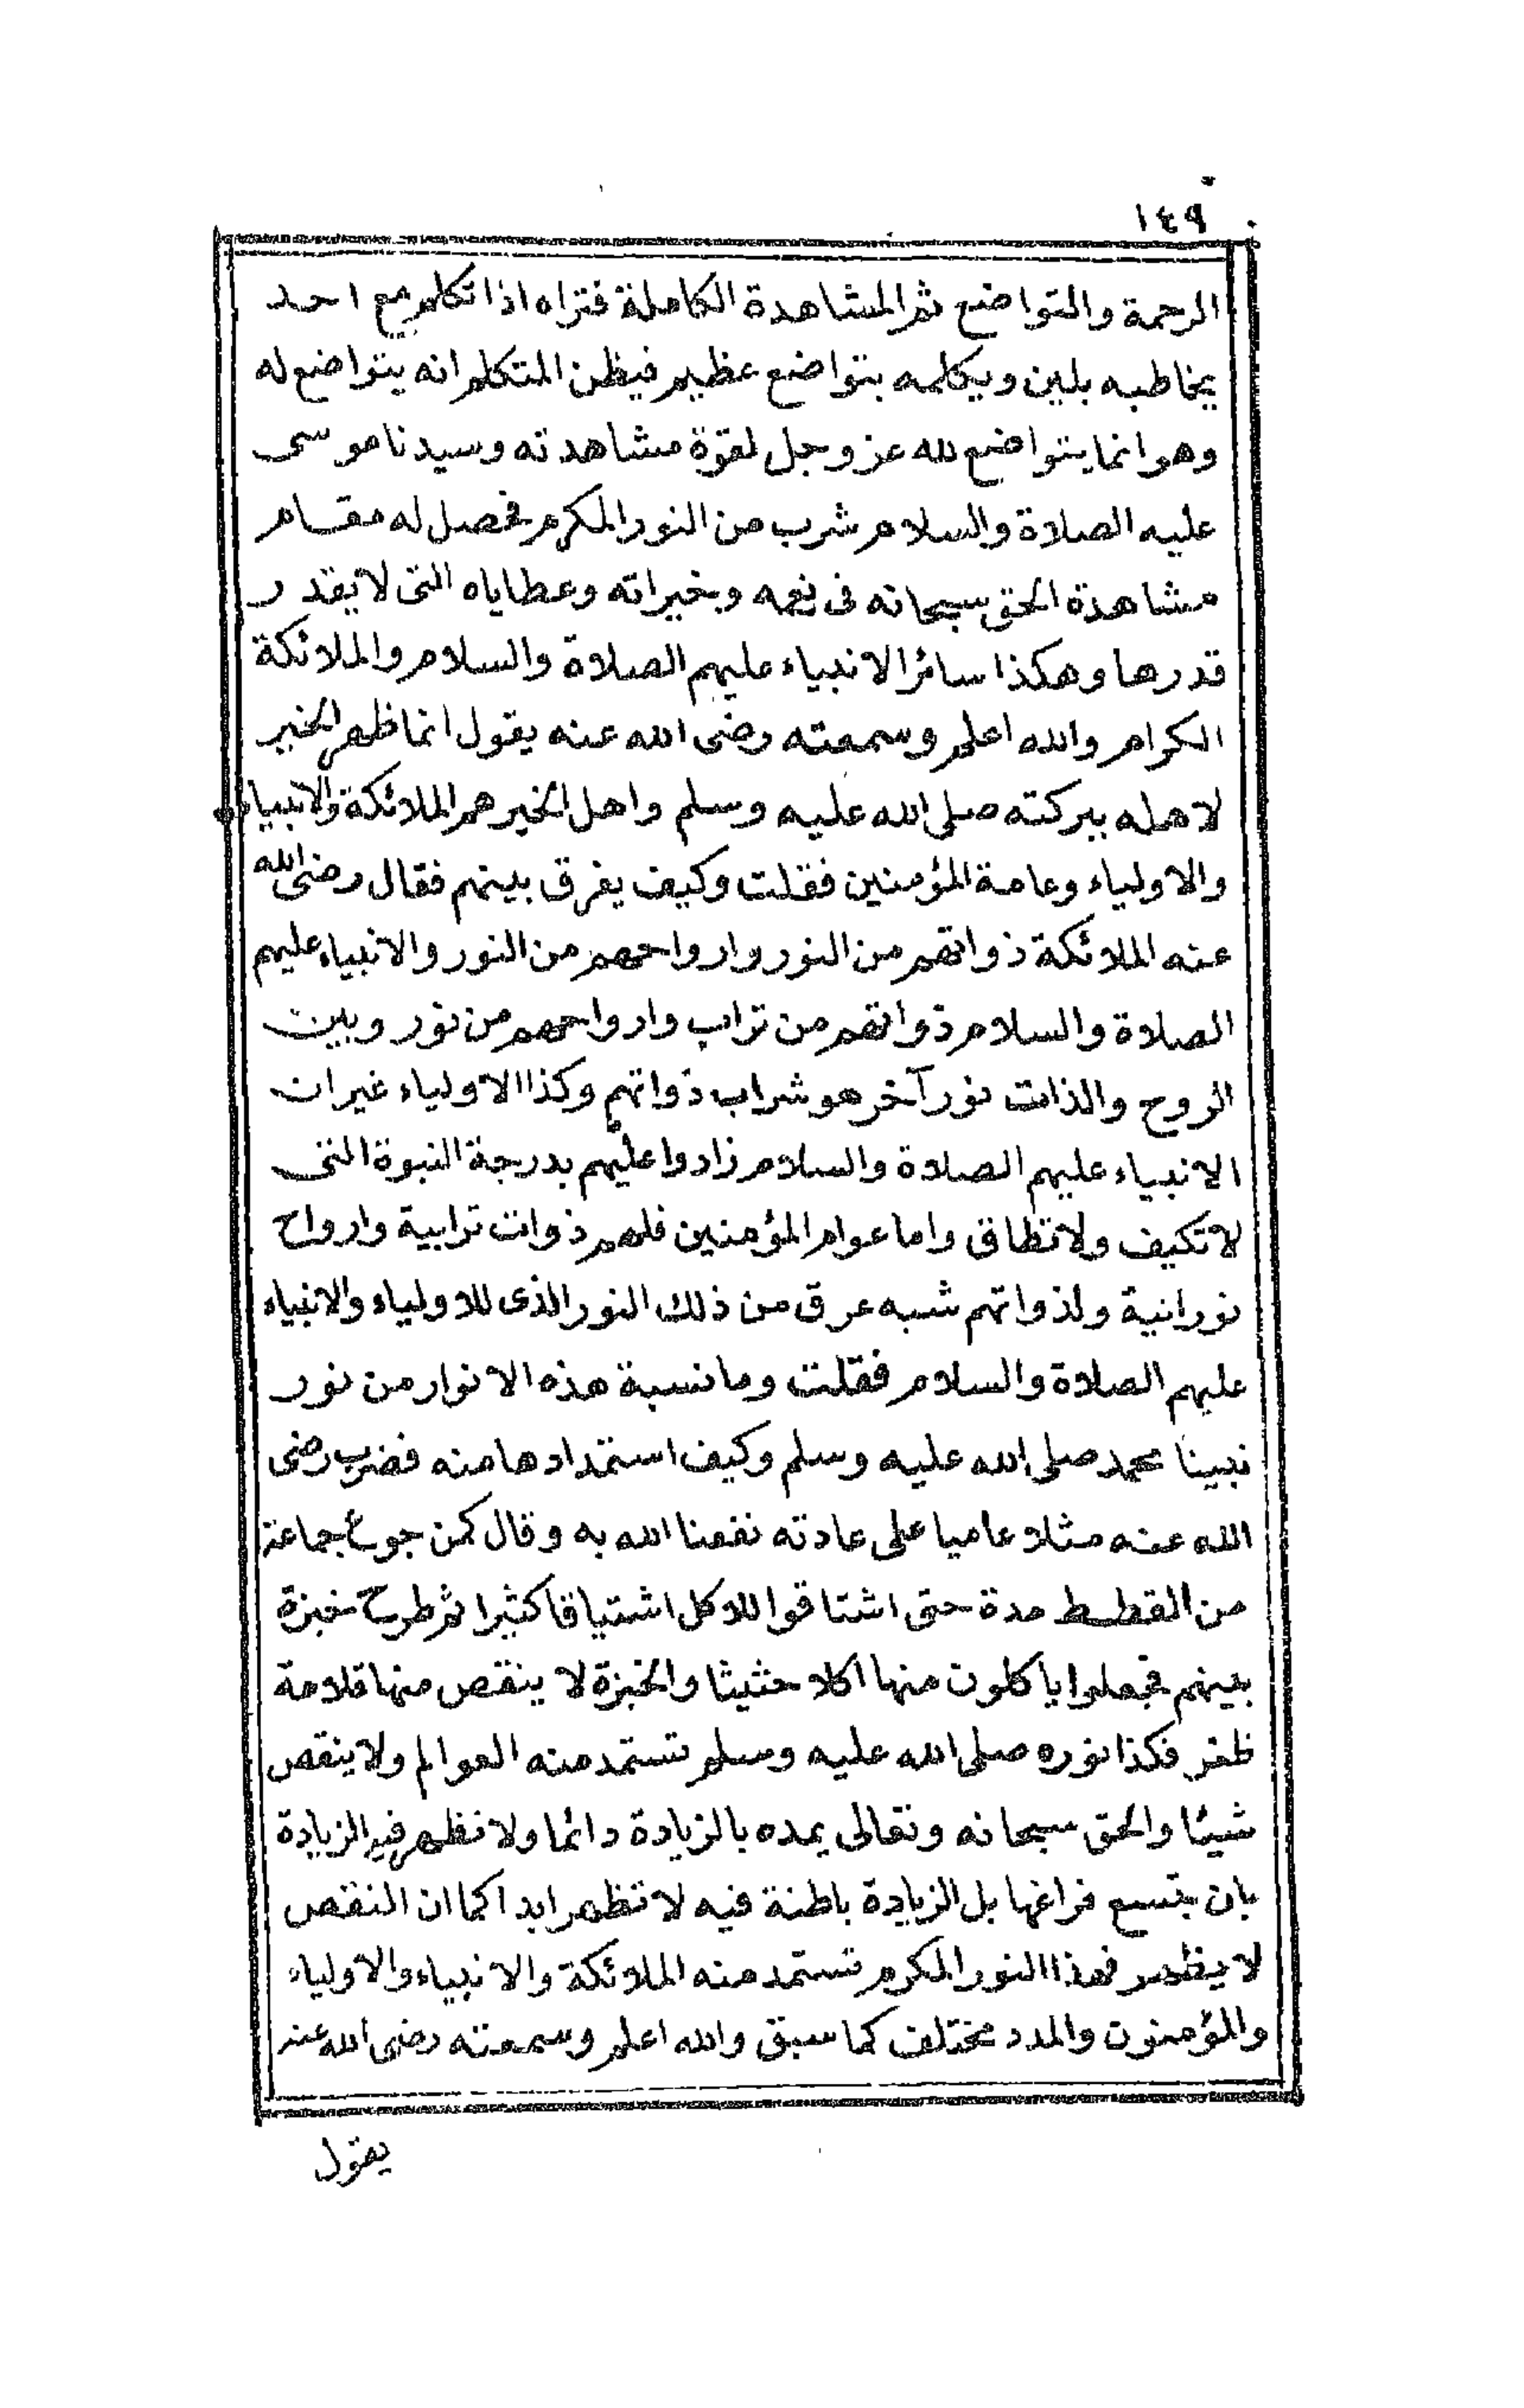 ١٤٩
الرحمة والتواضع ثم المشاهدة الكاملة فتراه اذا تكلم مع احد
يخاطبه بلين ويكلمه بتواضع عظيم فيظن المتكلم انه يتواضع له
وهو انما يتواضع لله عز وجل لقوة مشاهدته وسيدنا موسى
عليه الصلاة والسلام شرب من النور المكرم فحصل له مقام
مشاهدة الحق سبحانه فى نعمه وخيراته وعطاياه التى لا يقدر
قدرها وهكذا سائر الانبياء عليهم الصلاة والسلام والملائكة
الكرام والله اعلم وسمعته رضى الله عنه يقول انما ظهر الخير
لاهله ببركته صلى الله عليه وسلم واهل الخير هم الملائكة والانبياء
والاولياء وعامة المؤمنين فقلت وكيف يفرق بينهم فقال رضى الله
عنه الملائكة ذواتهم من النور وارواحهم من النور والانبياء عليهم
الصلاة والسلام ذواتهم من تراب وارواحهم من نور وبين
الروح والذات نور آخر هو شراب ذواتهم وكذا الاولياء غير ان
الانبياء عليهم الصلاة والسلام زادوا عليهم بدرجة النبوة التى
لا تكيف ولا تطاق واما عوام المؤمنين فلهم ذوات ترابية وارواح
نورانية ولذواتهم شبه عرق من ذلك النور الذى للاولياء والانبياء
عليهم الصلاة والسلام فقلت وما نسبة هذه الانوار من نور
نبينا محمد صلى الله عليه وسلم وكيف استمدادها منه فضرب رضى
الله عنه مثلا عاميا على عادته نفعنا الله به وقال كمن جوع جماعة
من القطط مدة حتى اشتاقوا للاكل اشتياقا كثيرا ثم طرح خبزة
بينهم فجعلوا ياكلون منها اكلا حثيثا والخبزة لا ينقص منها قلامة
ظفر فكذا نوره صلى الله عليه وسلم تستمد منه العوالم ولا ينقص
شيئا والحق سبحانه وتعالى يمده بالزيادة دائما ولا تظهر فيه الزيادة
بان يتسع فراغها بل الزيادة باطنة فيه لا تظهر ابدا كما ان النقص
لا يظهر فهذا النور المكرم تستمد منه الملائكة والانبياء والاولياء
والمؤمنون والمدد مختلف كما سبق والله اعلم وسمعته رضى الله عنه
يقول